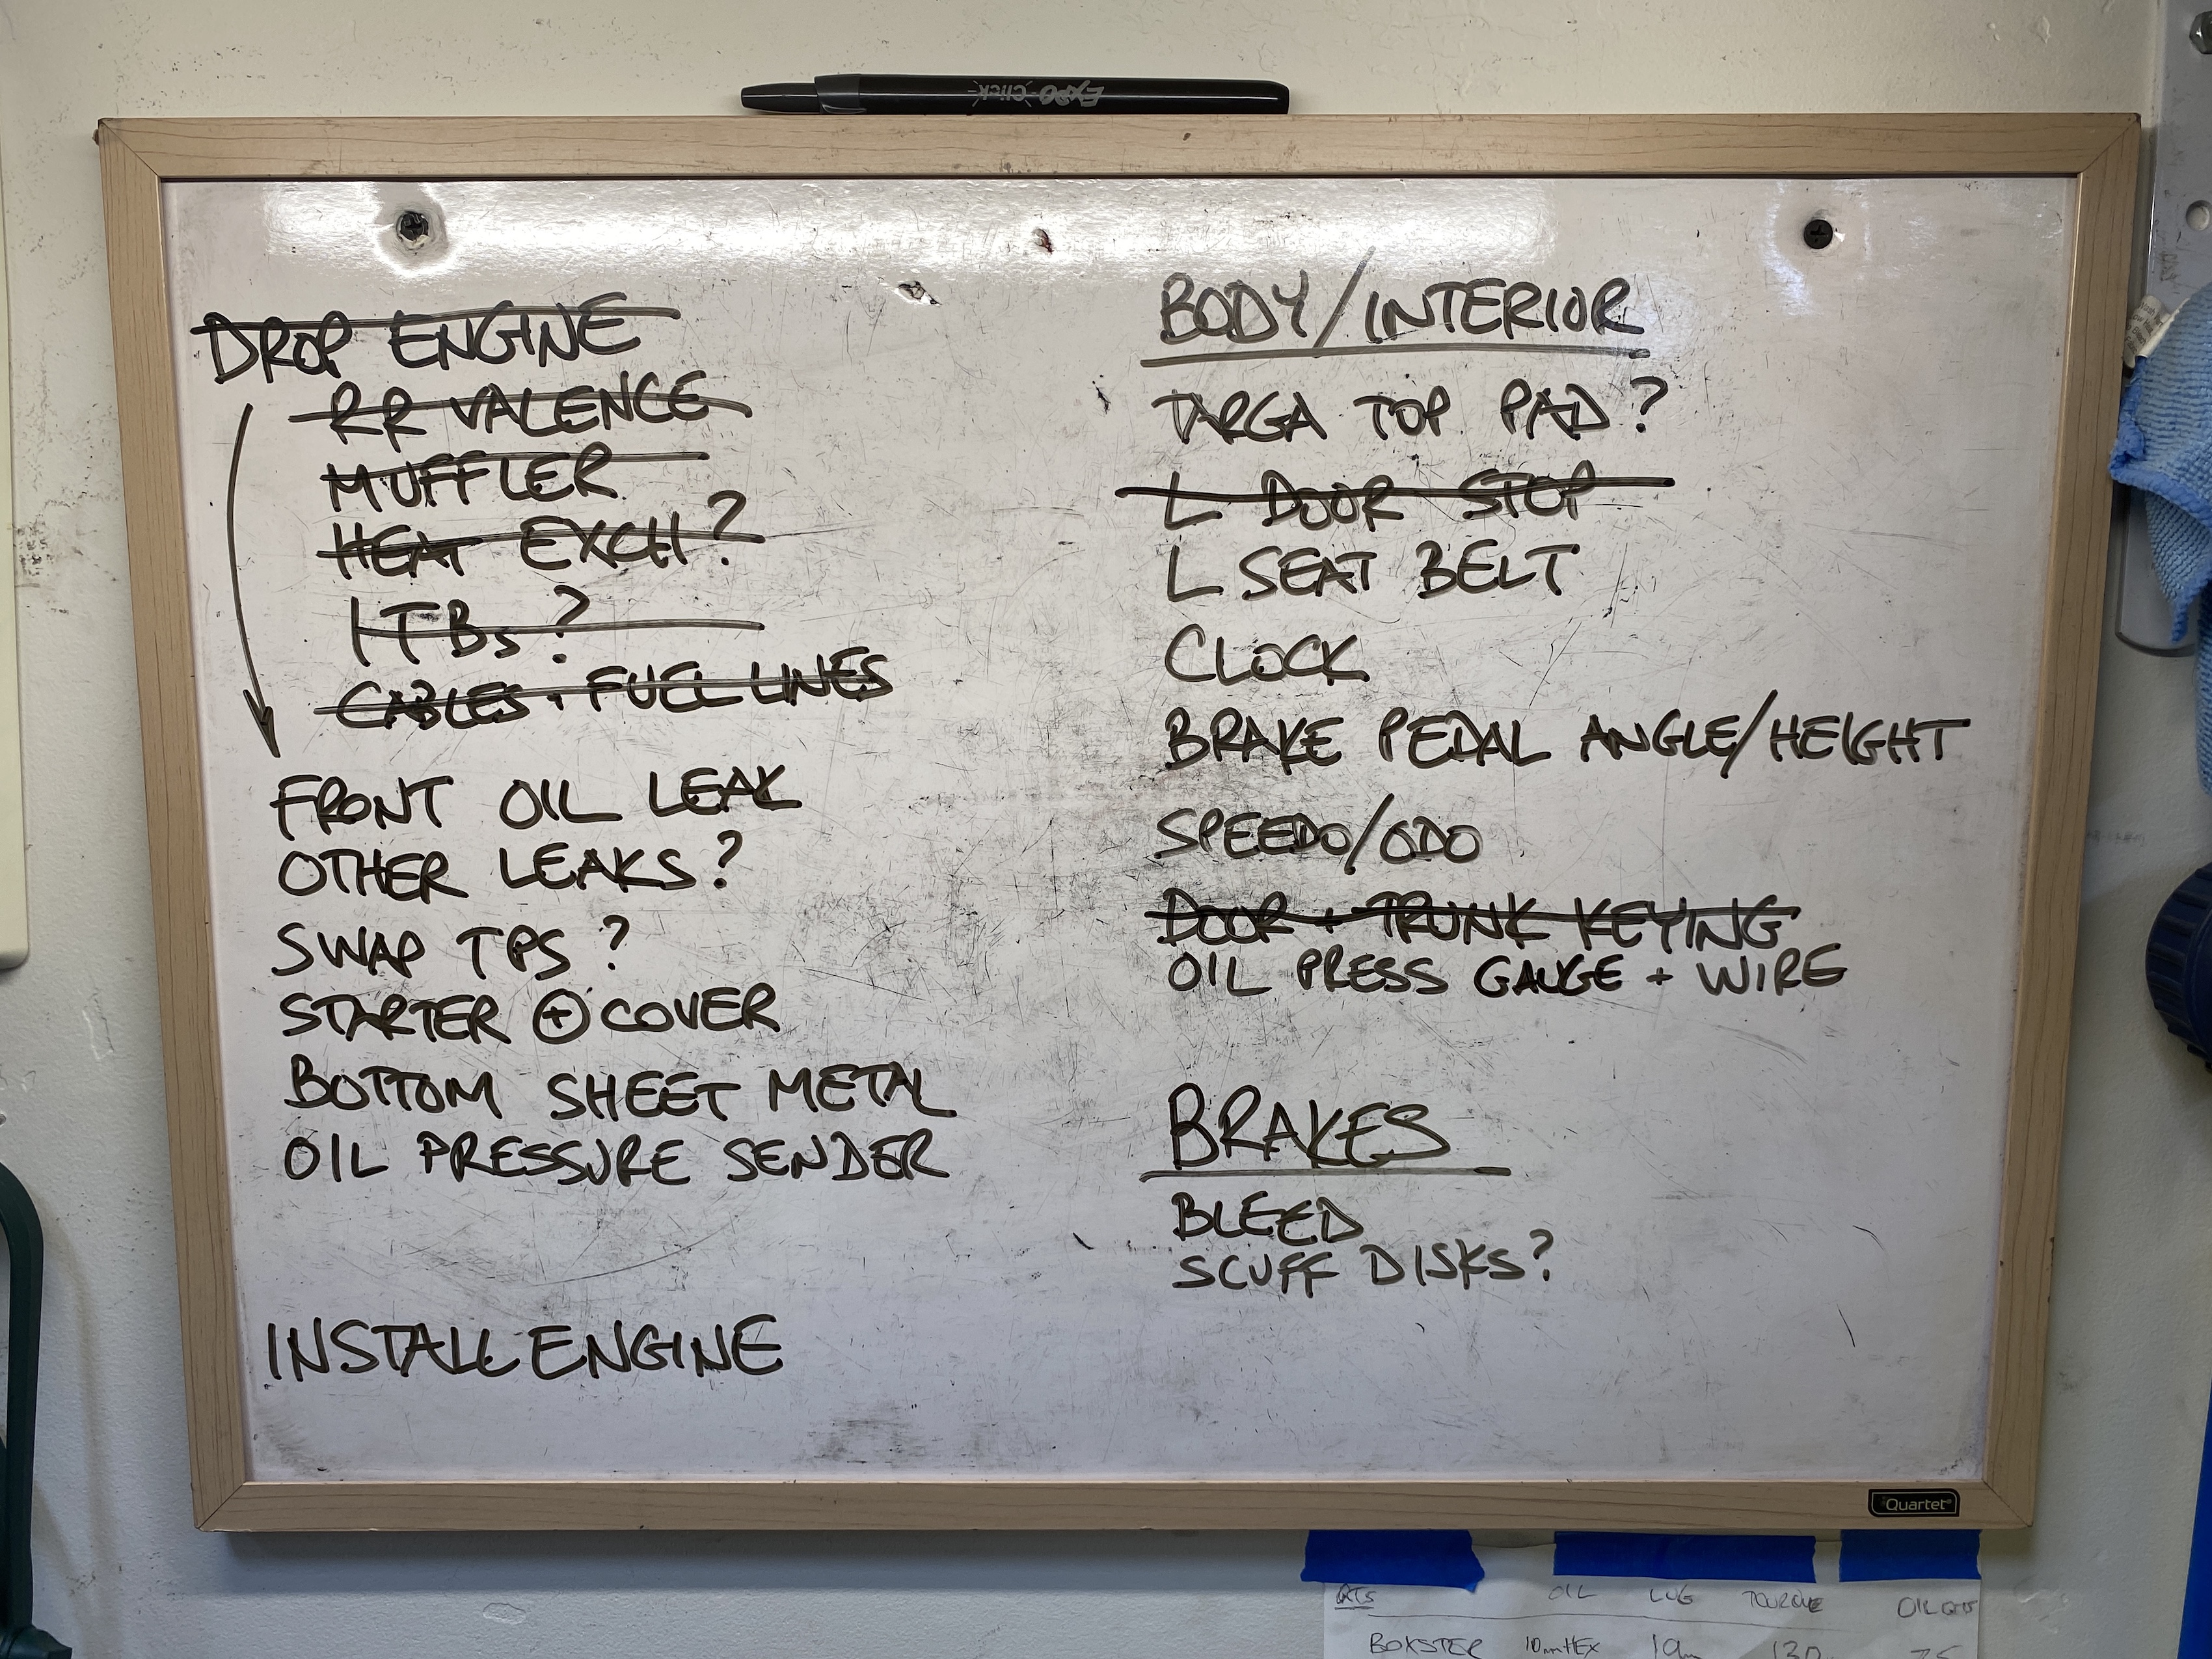 Expo Click
DROP ENGINE
RR VALENCE
MUFFLER
HEAT EXCH?
ITBs?
CABLES + FUEL LINES
FRONT OIL LEAK
OTHER LEAKS?
SWAP TPS?
STARTER ⊕ COVER
BOTTOM SHEET METAL
OIL PRESSURE SENDER
INSTALL ENGINE
BODY/INTERIOR
TARGA TOP PAD?
L DOOR STOP
L SEAT BELT
CLOCK
BRAKE PEDAL ANGLE/HEIGHT
SPEEDO/ODO
DOOR + TRUNK KEYING
OIL PRESS GAUGE + WIRE
BRAKES
BLEED
SCUFF DISKS?
Quartet
OIL LUG TORQUE OIL QTS
BOXSTER 10mm HEX 19m 130